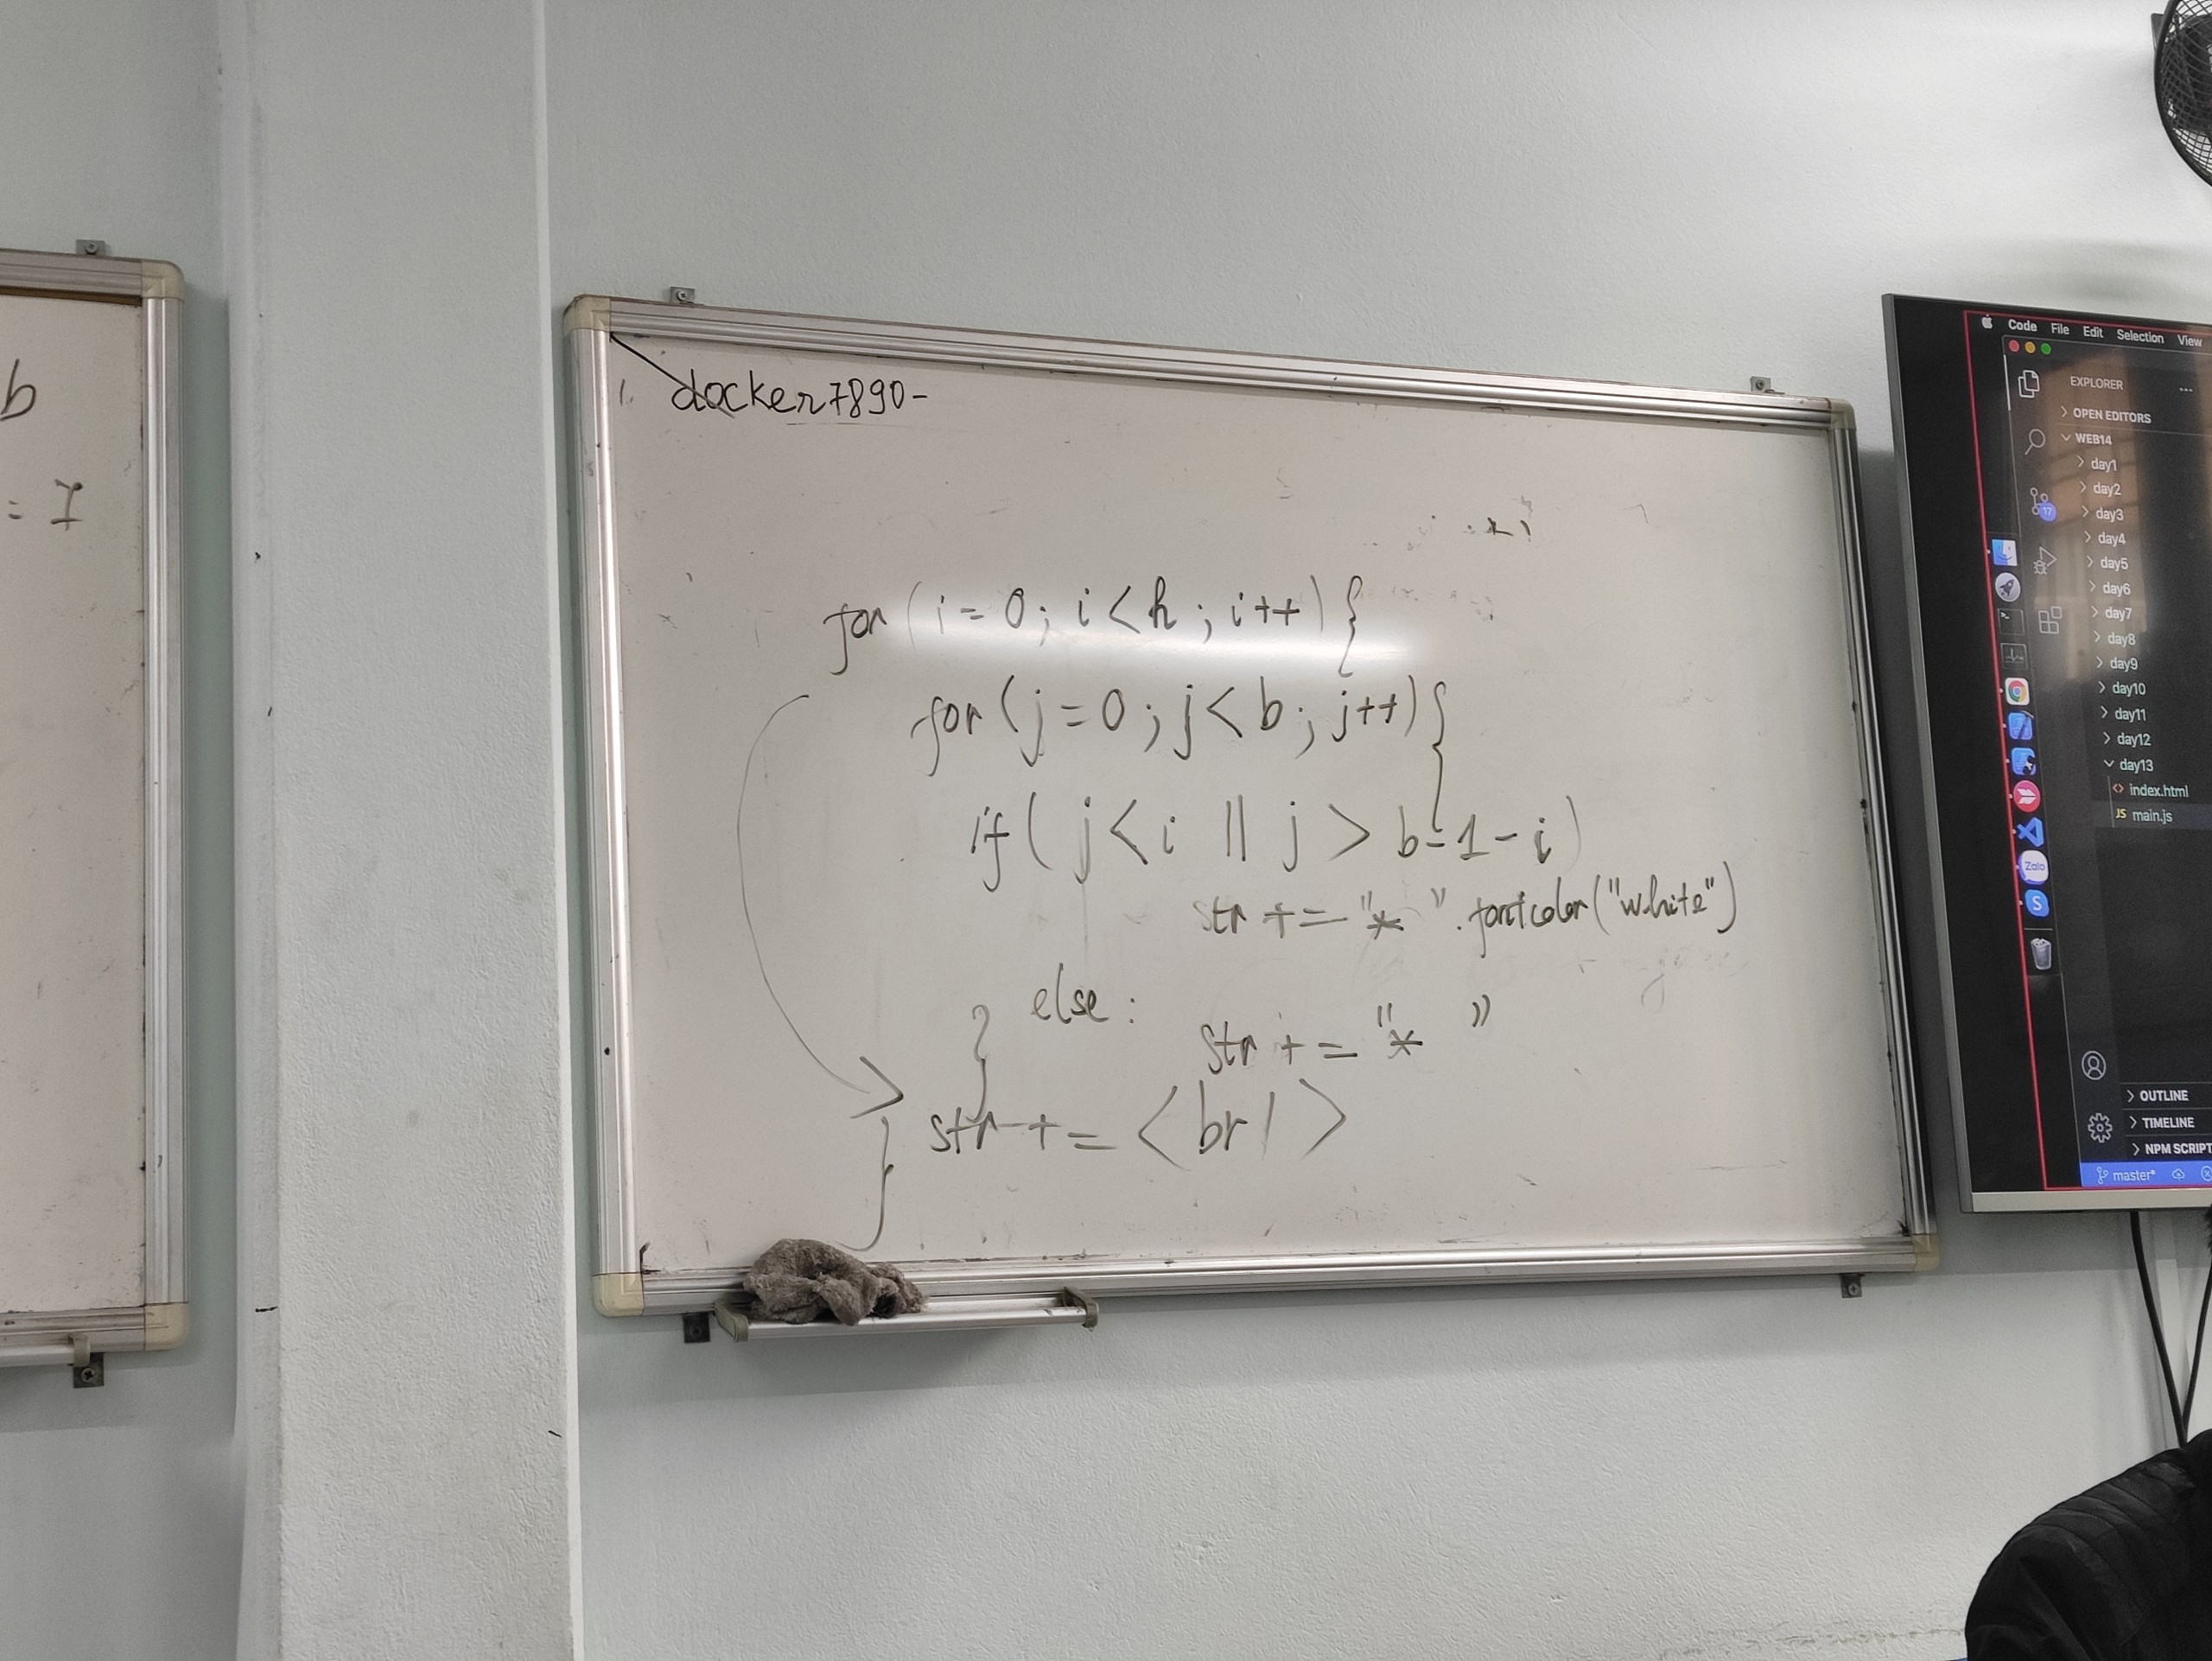 b
= I
docker7890-
for (i = 0; i < h; i++) {
for (j = 0; j < b; j++) {
if ( j < i || j > b - 1 - i )
str += "* ".fontcolor("white")
else :
} str += "* "
str += <br/>
}
Code File Edit Selection View
EXPLORER ...
OPEN EDITORS
WEB14
day1
day2
day3
17
day4
day5
day6
day7
day8
day9
day10
day11
day12
day13
<> index.html
JS main.js
Zalo
S
OUTLINE
TIMELINE
NPM SCRIPT
master*